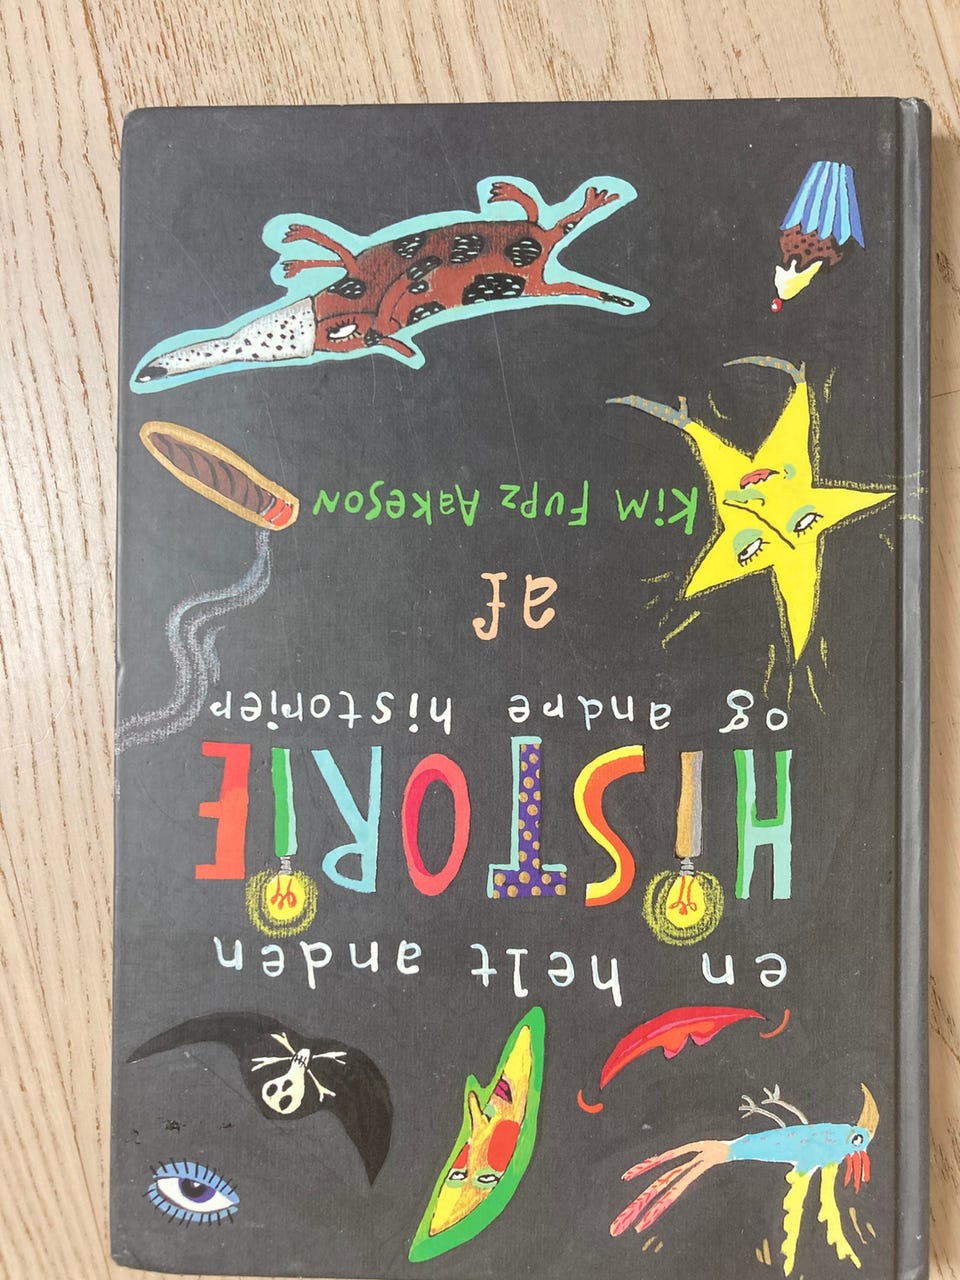 en helt anden
HISTORIE
og andre historier
af
Kim Fupz Aakeson